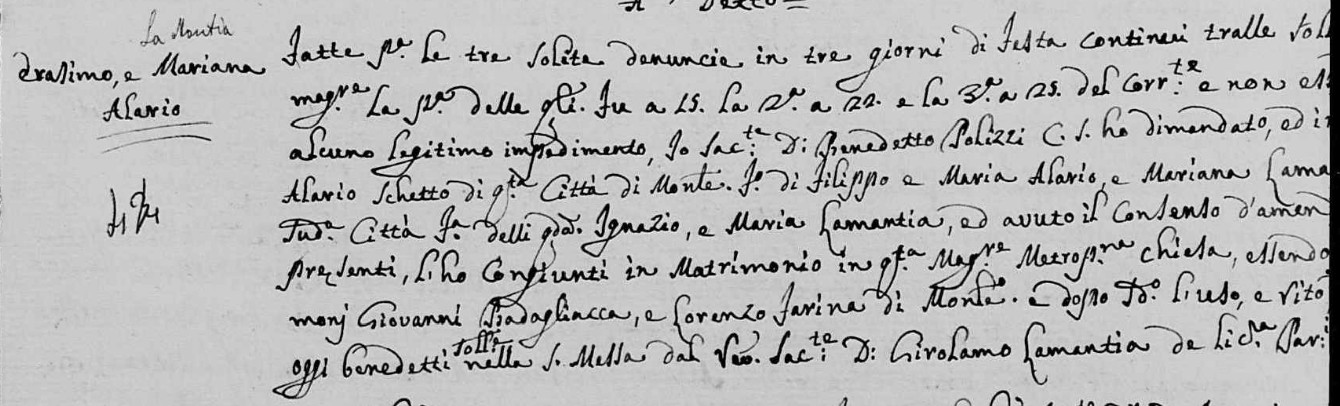 La Mantia
Erasimo, e Mariana
Alario
Fatte p.a le tre solite denuncie in tre giorni di festa continui tralle soll
mag.re La p.a delle qli. fu a 15. la 2.a a 22. e la 3.a a 25. del Corr.te e non ess
alcuno legitimo impedimento, Io Sac.te D: Benedetto Polizzi C. S. ho dimandato, ed in
Alario Schetto di q.ta Città di Monle. fo. di Filippo e Maria Alario, e Mariana Lama
sud.a Città fa. delli qdm. Ignazio, e Maria Lamantia, ed avuto il Consenso d'amend
presenti, li ho Congiunti in Matrimonio in q.ta Mag.re Metrop.na chiesa, essendo
monj Giovanni Badagliacca, e Lorenzo Farina di Monle. e doppo d.o l'uso, e rito
oggi benedetti soll: nella S. Messa dal Rev. Sac.te D: Girolamo Lamantia de lic.a Par: